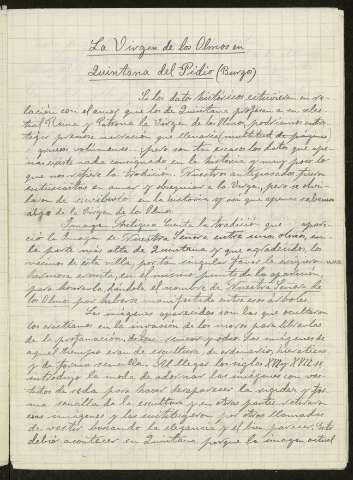 La Virgen de los Olmos en
Quintana del Pidio (Burgos)
Si los datos históricos estuvieran en re-
lación con el amor que los de Quintana profesan a su celes-
tial Reina y Patrona la Virgen de los Olmos, podríamos entre-
teger preciosa narración que llenaría multitud de páginas
y gruesos volúmenes, pero son tan escasos los datos que ape-
nas existe nada consignado en la historia y muy poco lo
que nos refiere la tradición. Nuestros antepasados fueron
entusiastas en amar y obsequiar a la Virgen, pero se olvi-
daron de escribirlo en la historia y así que apenas sabemos
algo de la Virgen de los Olmos.
Imagen Antigua. Cuenta la tradición que apare-
ció la imagen de Nuestra Señora entre unos olmos, en
la parte más alta de Quintana y que agradecidos los
vecinos de esta villa por tan singular favor le erigieron una
hermosa ermita, en el mismo punto de la aparición,
para honrarla, dándole el nombre de Nuestra Señora de
los Olmos por haberse manifestado entre esos árboles.
Las imágenes aparecidas son las que ocultaron
los cristianos en la invasión de los moros para librarlas
de la profanación, y odio. Las imágenes de
aquel tiempo eran de escultura de ordinario, hieráticas
y de forma sencilla. Al llegar los siglos XVII y XVIII se
introdujo la moda de adornar las imágenes con ves-
tidos de seda para hacer desaparecer la rigidez y for-
ma sencilla de la escultura y en otras partes retiraron
esas imágenes y las sustituyeron por otras llamadas
de vestir buscando la elegancia y el bien parecer. Esto
debió acontecer en Quintana porque la imagen actual